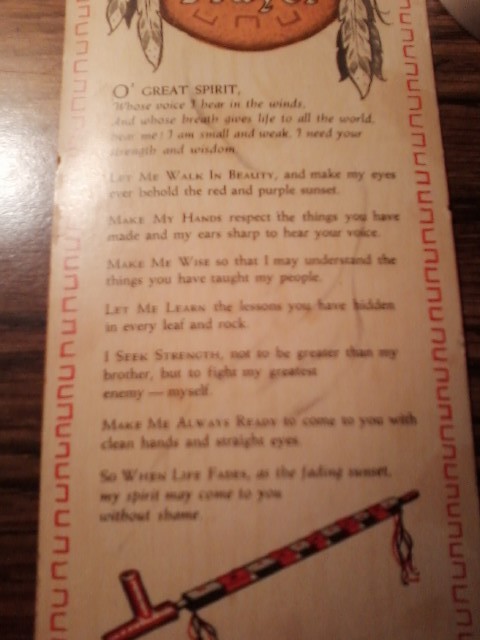 Prayer
O' GREAT SPIRIT,
Whose voice I hear in the winds,
And whose breath gives life to all the world,
hear me! I am small and weak, I need your
strength and wisdom.
LET ME WALK IN BEAUTY, and make my eyes
ever behold the red and purple sunset.
MAKE MY HANDS respect the things you have
made and my ears sharp to hear your voice.
MAKE ME WISE so that I may understand the
things you have taught my people.
LET ME LEARN the lessons you have hidden
in every leaf and rock.
I SEEK STRENGTH, not to be greater than my
brother, but to fight my greatest
enemy — myself.
MAKE ME ALWAYS READY to come to you with
clean hands and straight eyes.
SO WHEN LIFE FADES, as the fading sunset,
my spirit may come to you
without shame.